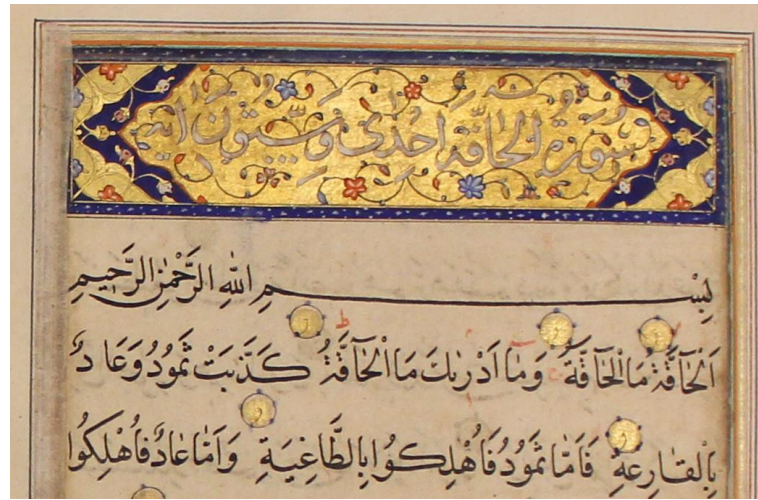 سورة الحاقة احدى وستون اية
بِسْمِ اللهِ الرَّحْمٰنِ الرَّحِيمِ
اَلْحَآقَّةُ مَا الْحَآقَّةُ وَمَآ اَدْرٰىكَ مَا الْحَآقَّةُ كَذَّبَتْ ثَمُودُ وَعَادٌ
بِالْقَارِعَةِ فَاَمَّا ثَمُودُ فَاُهْلِكُوا بِالطَّاغِيَةِ وَاَمَّا عَادٌ فَاُهْلِكُوا